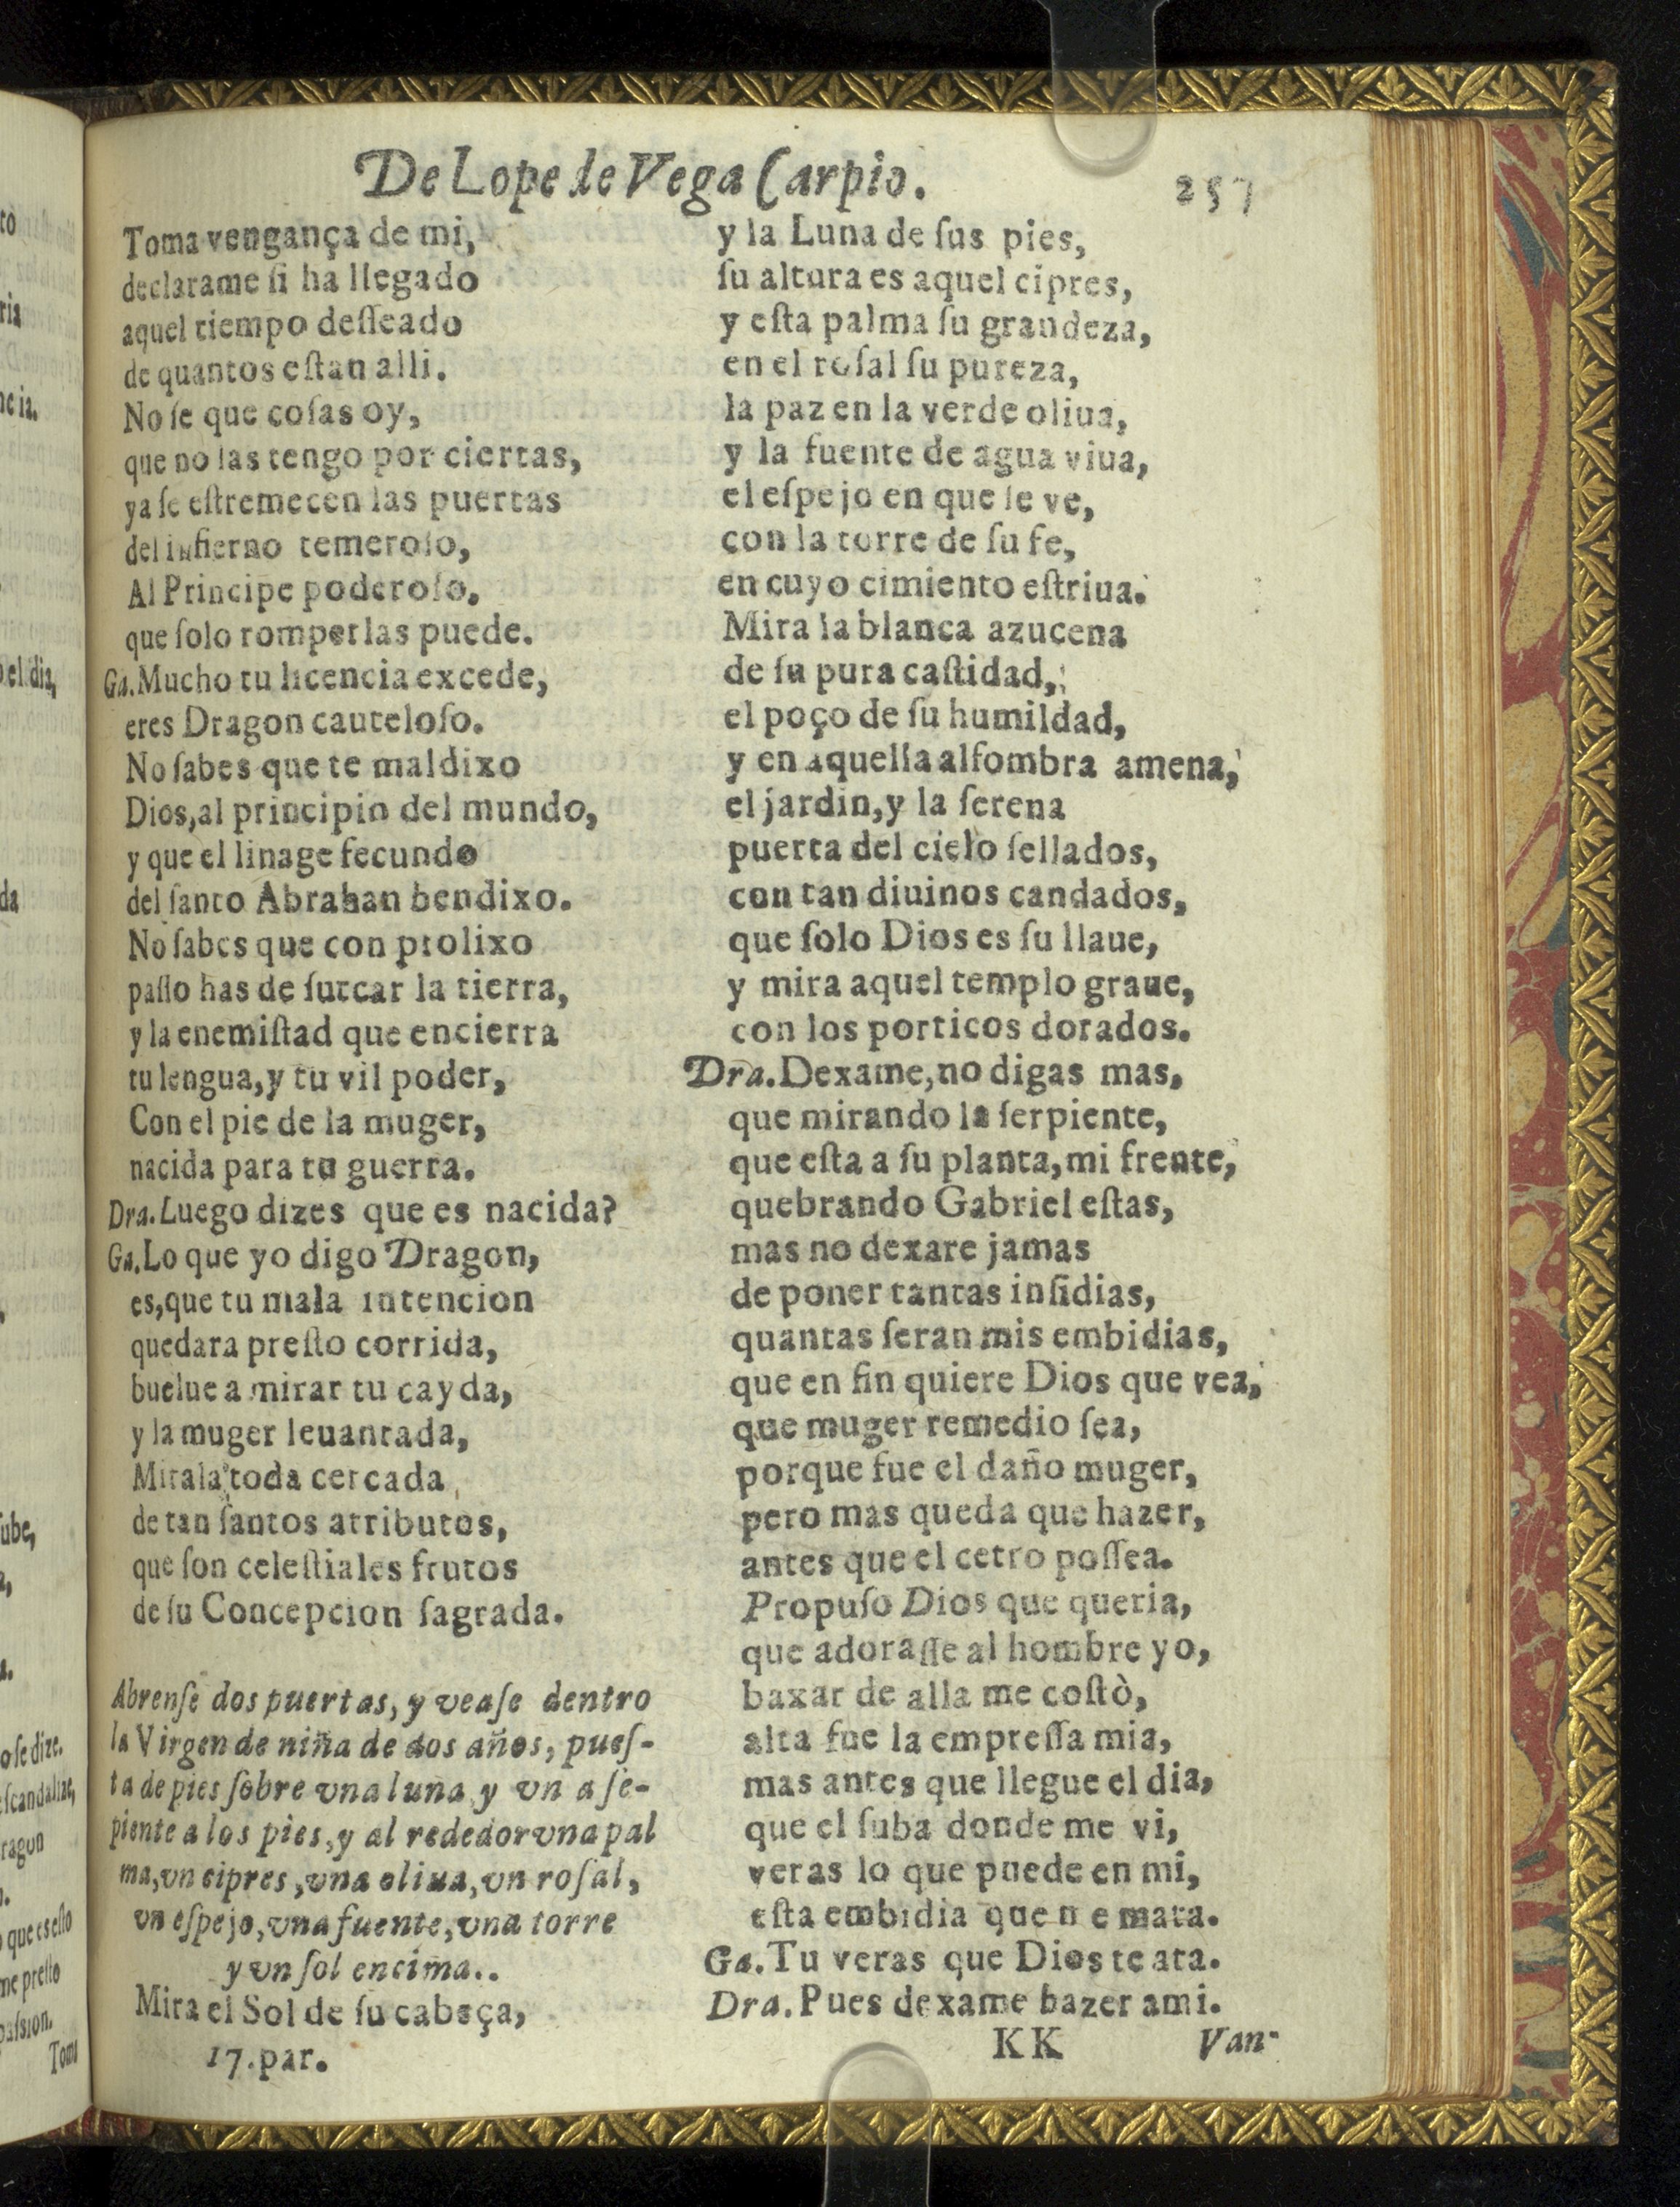 De Lope de Vega Carpio.
257
Toma vengança de mi,
declarame si ha llegado
aquel tiempo desseado
de quantos estan alli.
No se que cosas oy,
que no las tengo por ciertas,
ya se estremecen las puertas
del infierno temeroso,
Al Principe poderoso.
que solo romperlas puede.
Ga. Mucho tu licencia excede,
eres Dragon cauteloso.
No sabes que te maldixo
Dios, al principio del mundo,
y que el linage fecundo
del santo Abrahan bendixo.
No sabes que con prolixo
passo has de surcar la tierra,
y la enemistad que encierra
tu lengua, y tu vil poder,
Con el pie de la muger,
nacida para tu guerra.
Dra. Luego dizes que es nacida?
Ga. Lo que yo digo Dragon,
es, que tu mala intencion
quedara presto corrida,
buelue a mirar tu cayda,
y la muger leuantada,
Mirala toda cercada
de tan santos atributos,
que son celestiales frutos
de su Concepcion sagrada.
Abrense dos puertas, y vease dentro
la Virgen de niña de dos años, pues-
ta de pies sobre vna luna y vn a se-
piente a los pies, y al rededor vna pal
ma, vn cipres, vna oliua, vn rosal,
vn espejo, vna fuente, vna torre
y vn sol encima..
Mira el Sol de su cabeça,
17. par.
y la Luna de sus pies,
su altura es aquel cipres,
y esta palma su grandeza,
en el rosal su pureza,
la paz en la verde oliua,
y la fuente de agua viua,
el espejo en que se ve,
con la torre de su fe,
en cuyo cimiento estriua.
Mira la blanca azucena
de su pura castidad,
el poço de su humildad,
y en aquella alfombra amena,
el jardin, y la serena
puerta del cielo sellados,
con tan diuinos candados,
que solo Dios es su llaue,
y mira aquel templo graue,
con los porticos dorados.
Dra. Dexame, no digas mas,
que mirando la serpiente,
que esta a su planta, mi frente,
quebrando Gabriel estas,
mas no dexare jamas
de poner tantas insidias,
quantas seran mis embidias,
que en fin quiere Dios que vea,
que muger remedio sea,
porque fue el daño muger,
pero mas queda que hazer,
antes que el cetro possea.
Propuso Dios que queria,
que adorasse al hombre yo,
baxar de alla me costò,
alta fue la empressa mia,
mas antes que llegue el dia,
que el suba donde me vi,
veras lo que puede en mi,
esta embidia que me mata.
Ga. Tu veras que Dios te ata.
Dra. Pues dexame hazer a mi.
KK
Van-